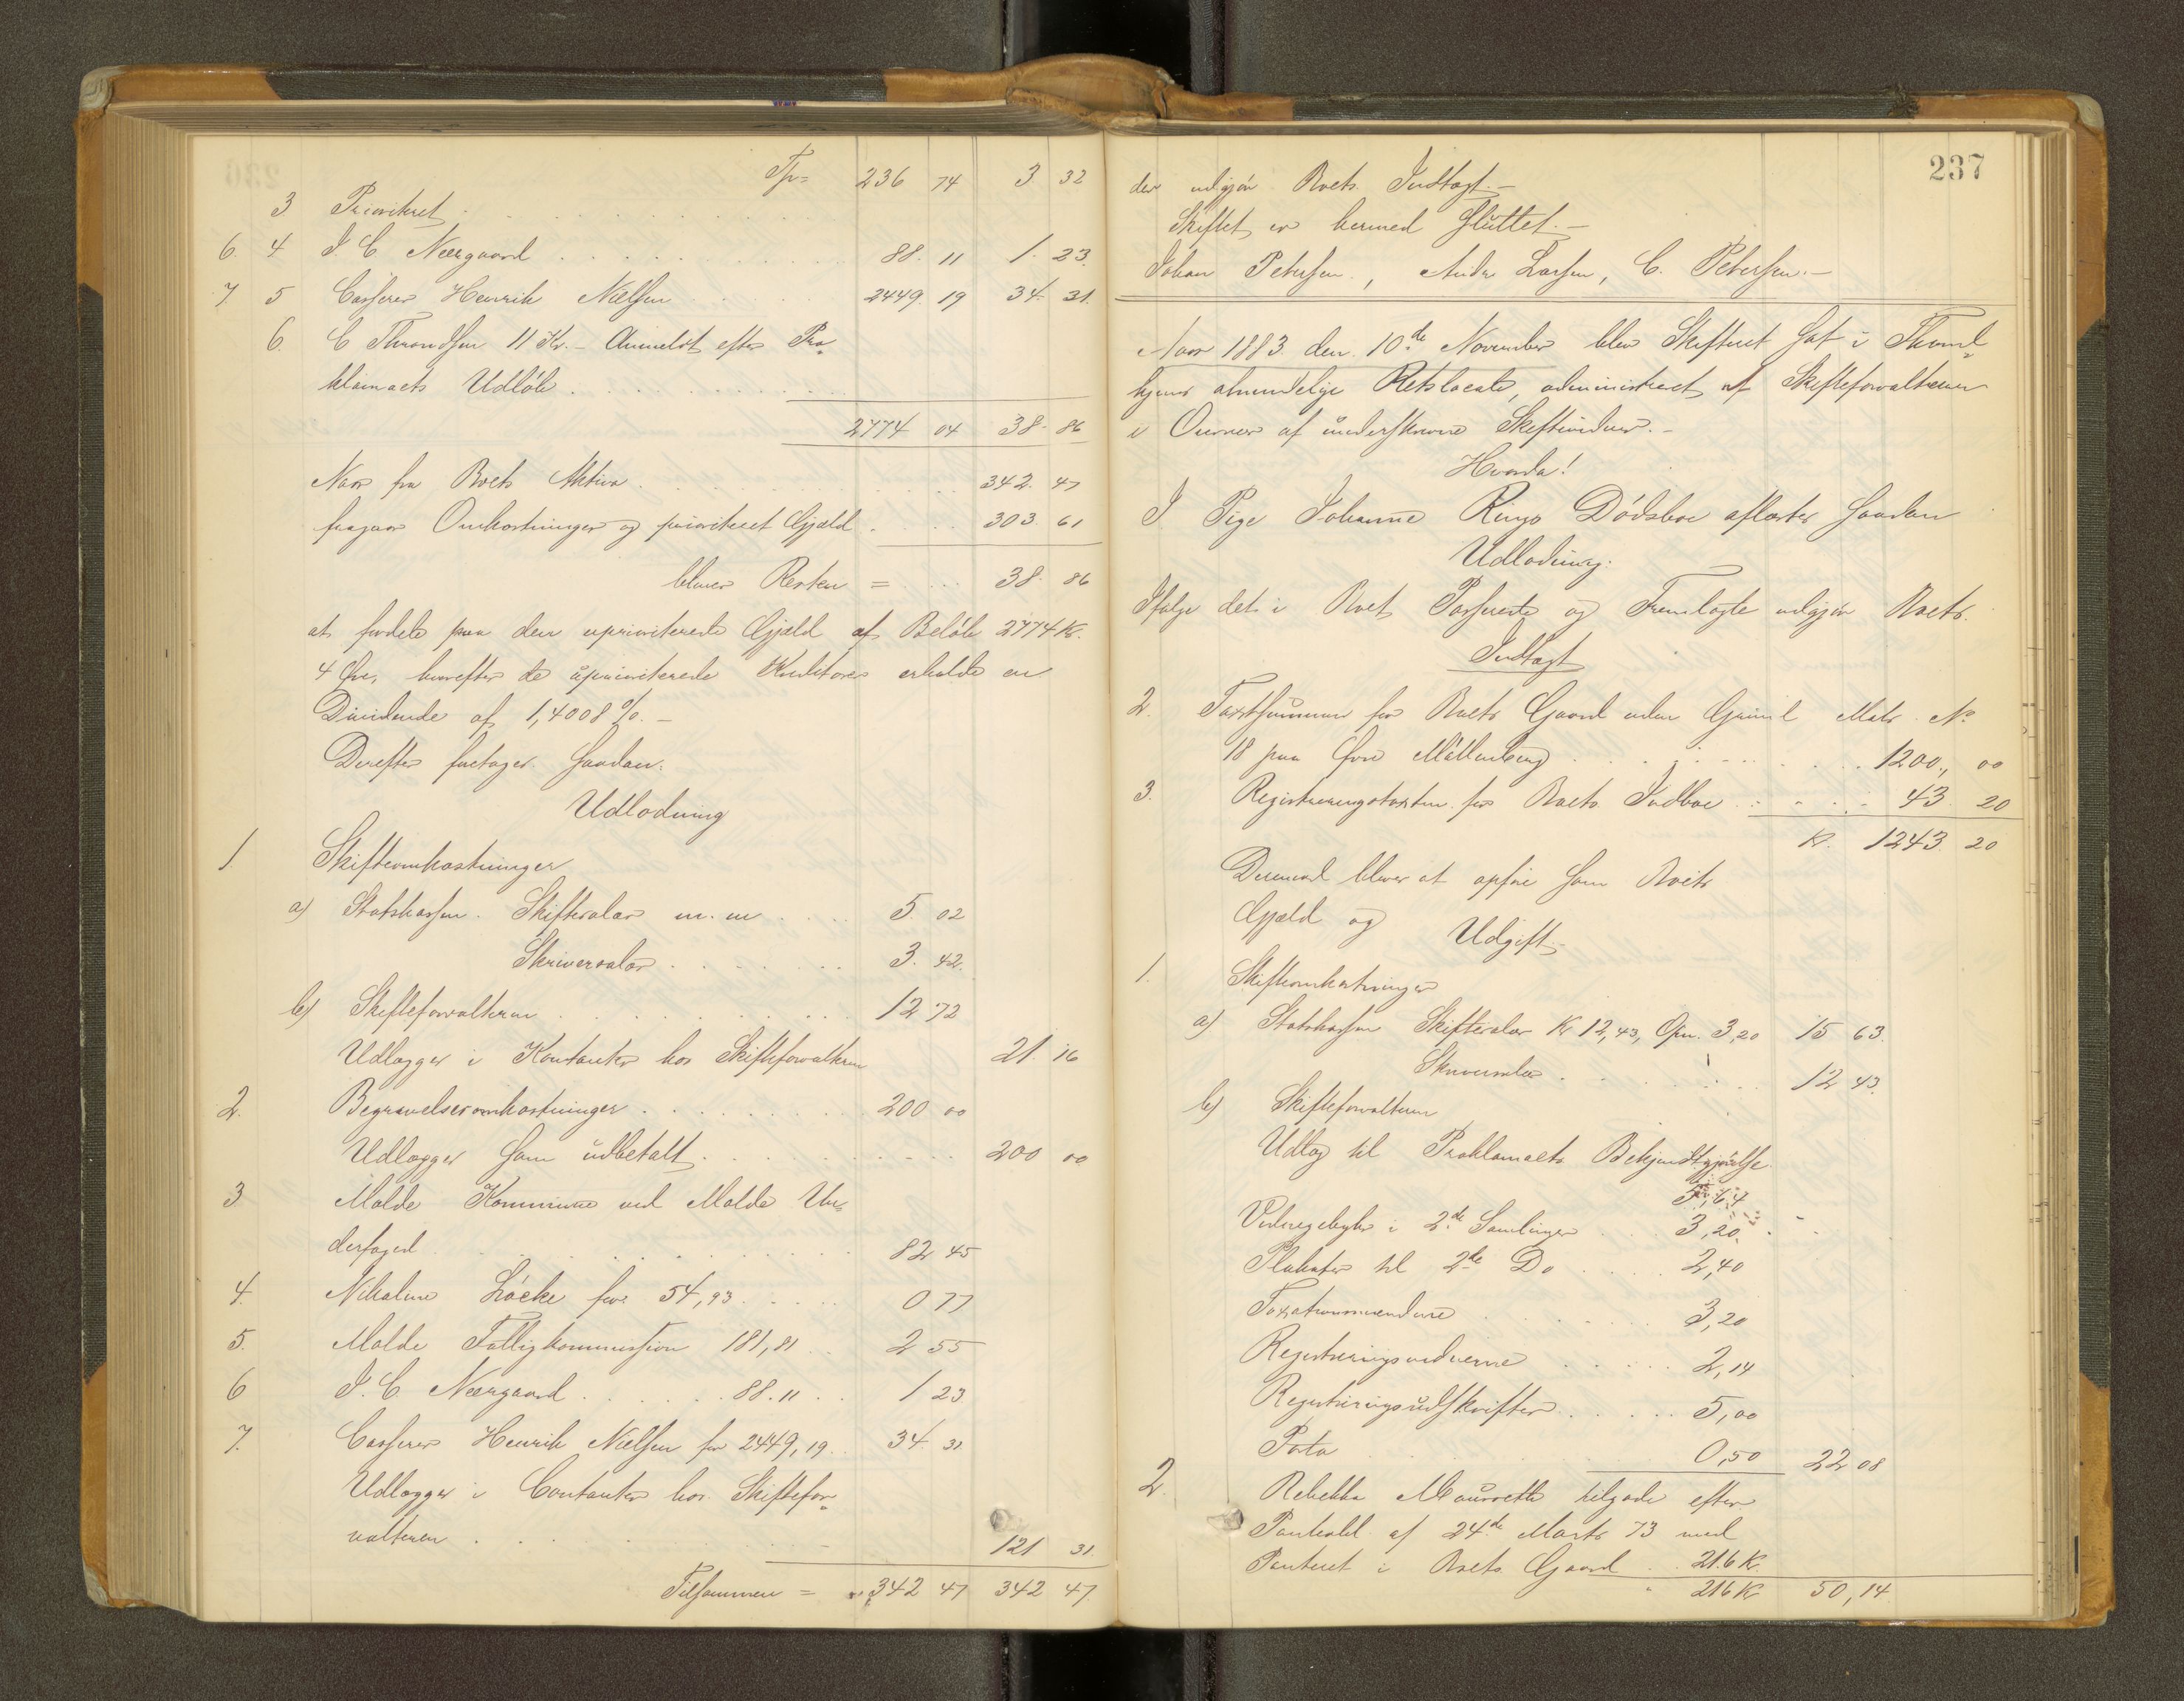 Tr= 236 74 3 32
3 Prioritert
6. 4 J. C. Neergaard 88. 11 1. 23.
7 5 Casserer Henrik Nielsen 2449. 19 34. 31.
6. C Throndsen 11 Kr. – Anmeldt efter Pro-
klamaets Udløb
2774 04 38. 86
Naar fra Boets Aktiva 342. 47
fragaar Omkostninger og prioriteret Gjæld 303. 61
bliver Resten = 38. 86
at fordele paa den uprioriterede Gjæld af Beløb 2774 Kr.
4 Øre, hvorefter de uprioriterede Kreditorer erholde en
Dividende af 1,4008 %. –
Derefter foretoges saadan.
Udlodning
1 Skifteomkostninger
a) Statskassen. Skiftesalær m. m 5. 02
Skriversalær 3. 42.
b) Skifteforvalteren 12 72
Udlægges i Kontanter hos Skifteforvalteren 21. 16
2. Begravelsesomkostninger 200 00
Udlægges som udbetalt 200 00
3 Molde Kommune ved Molde Un-
derfoged 82 45
4. Nikoline Løcke for 54,93 0 77
5. Molde Fattigkommission 181,81 2 55
6 J. C. Neergaard 88. 11 1 23
7. Casserer Henrik Nielsen for 2449,19 34 31
Udlægges i Contanter hos Skiftefor-
valteren 121 31.
Tilsammen = 342 47 342 47
237
der udgjør Boets Indtægt. –
Skiftet er hermed sluttet. –
Johan Petersen, Andr Larsen, C. Petersen. –
Aar 1883 den 10de November blev Skifteret sat i
almindelige Retslocale, administreret af Skifteforvalteren
i Overvær af underskrevne Skiftevidner. –
Hvorda!
I Pige Johanne Rings Dødsbo afsluttes saadan
Udlodning.
Ifølge det i Boet Passerede og Fremlagte udgjør Boets
Indtægt
2. Taxtsummen for Boets Gaard uden Grund Matr. No
18 paa Øvre Møllenberg 1200., 00
3. Registreringstaxten for Boets Indboe 43. 20
Kr. 1243. 20
Derimod bliver at opføre som Boets
Gjæld og Udgift. –
1. Skifteomkostninger
a) Statskassen Skiftesalær Kr 12,43, Opn. 3,20 15 63.
Skriversalær 12 43.
b) Skifteforvalteren
Udlæg til Proklamaets Bekjendtgjørelse
5,64
Vidnegebyhr i 2de Samlinger 3,20
Plakater til 2de Do 2,40
Taxationsmændene 3,20
Registreringsvidnerne 2,14
Registreringsudskriften 5,00
Porto 0,50 22 08
2. Rebekka tilgode efter
Panteobl. af 24de Marts 73 med
Panteret i Boets Gaard 216 Kr
216 Kr 50,14